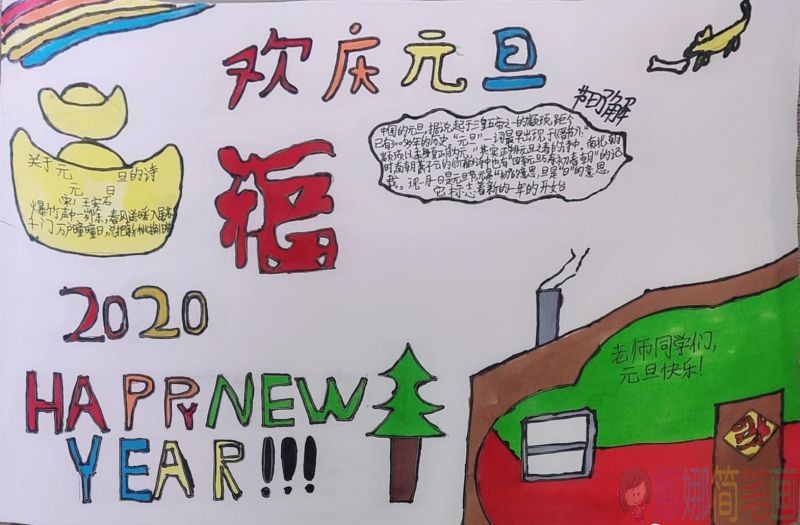 欢庆元旦
节日了解
关于元旦的诗
元日
宋 王安石
爆竹声中一岁除,春风送暖入屠苏
千门万户曈曈日,总把新桃换旧
中国的元旦,据说起于三皇五帝之一的颛顼,距今
已有3000多年的历史。"元旦"一词最早出现于《晋书》:
的诗中,南北朝
时
它标志着新的一年的开始
福
2020
HAPPY NEW
YEAR!!!
老师同学们,
元旦快乐!
简画